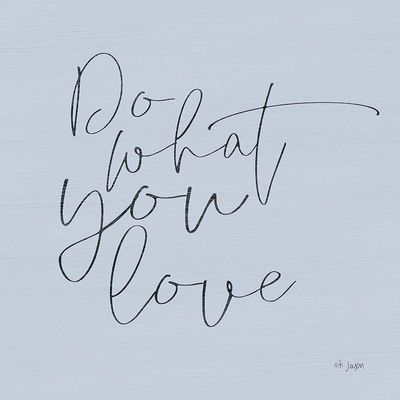 Do
what
you
love
©K Jaxon